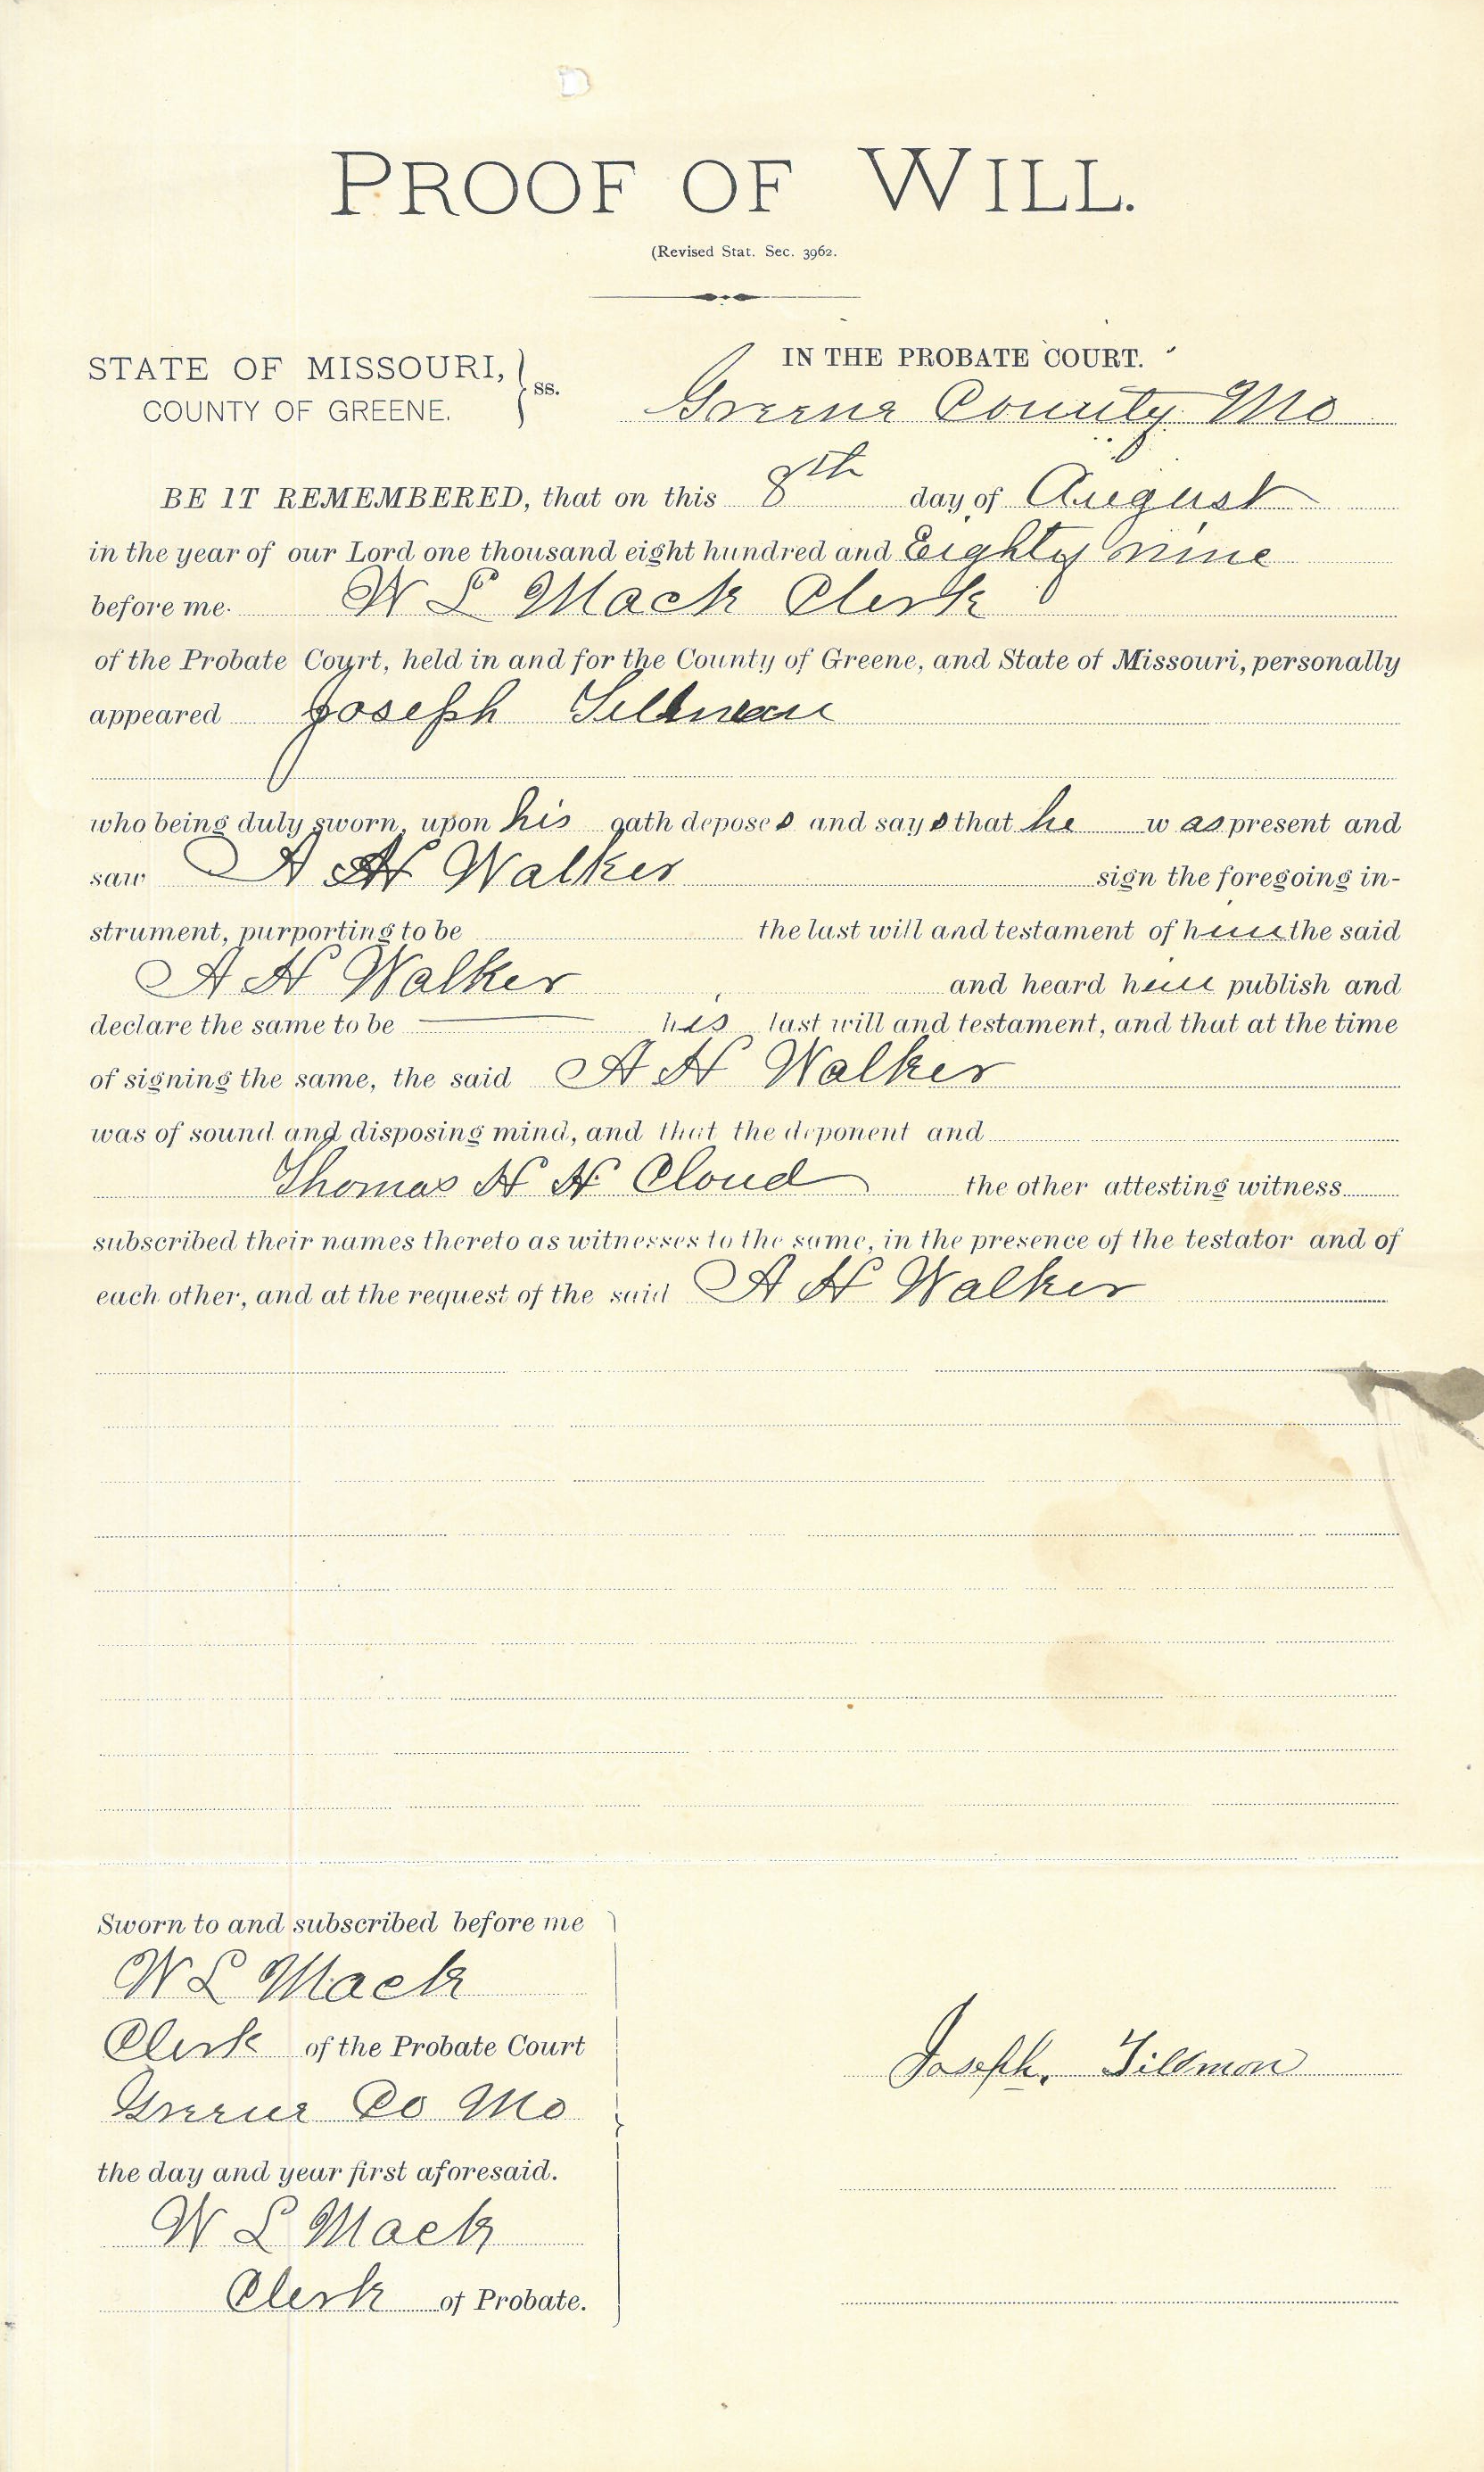 PROOF OF WILL.
(Revised Stat. Sec. 3962.
STATE OF MISSOURI,
COUNTY OF GREENE. } ss.
IN THE PROBATE COURT.
Greene County Mo
BE IT REMEMBERED, that on this 8th day of August
in the year of our Lord one thousand eight hundred and Eighty nine
before me W L Mack Clerk
of the Probate Court, held in and for the County of Greene, and State of Missouri, personally
appeared Joseph Tillman
who being duly sworn, upon his oath deposes and says that he was present and
saw A H Walker sign the foregoing in-
strument, purporting to be the last will and testament of him the said
A H Walker and heard him publish and
declare the same to be his last will and testament, and that at the time
of signing the same, the said A H Walker
was of sound and disposing mind, and that the deponent and
Thomas H H Cloud the other attesting witness
subscribed their names thereto as witnesses to the same, in the presence of the testator and of
each other, and at the request of the said A H Walker
Sworn to and subscribed before me
W L Mack
Clerk of the Probate Court
Greene Co Mo
the day and year first aforesaid.
W L Mack
Clerk of Probate.
Joseph. Tillmon